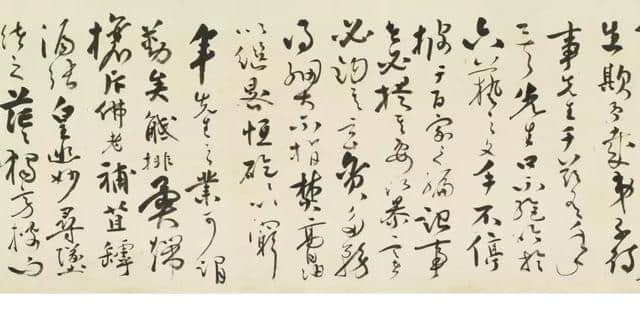 生欺予哉弟子侍
事先生于茲有年
矣先生口不絕吟於
六藝之文手不停
披于百家之編記事
者必提其要纂言
者必鉤其玄貪多務
得細大不捐焚膏油
以繼晷恒矻矻以窮
年先生之業可謂
勤矣觝排異端
攘斥佛老補苴罅
漏張皇幽妙尋墜
緒之茫茫獨旁搜而